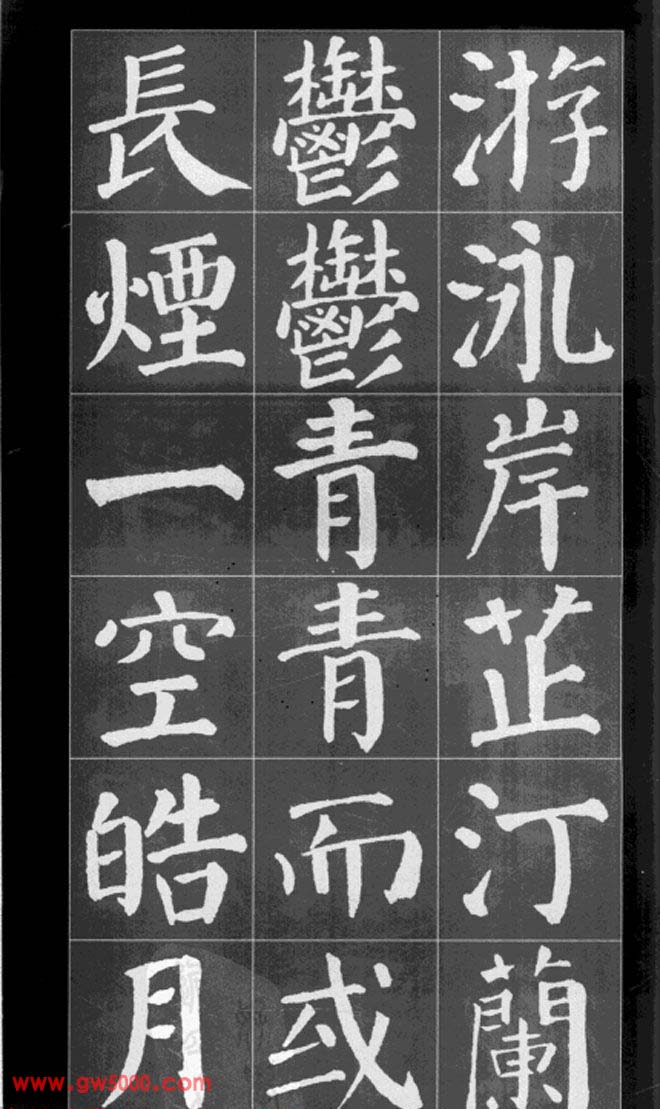 游泳岸芷汀蘭
鬱鬱青青而或
長煙一空皓月
www.gw5000.com